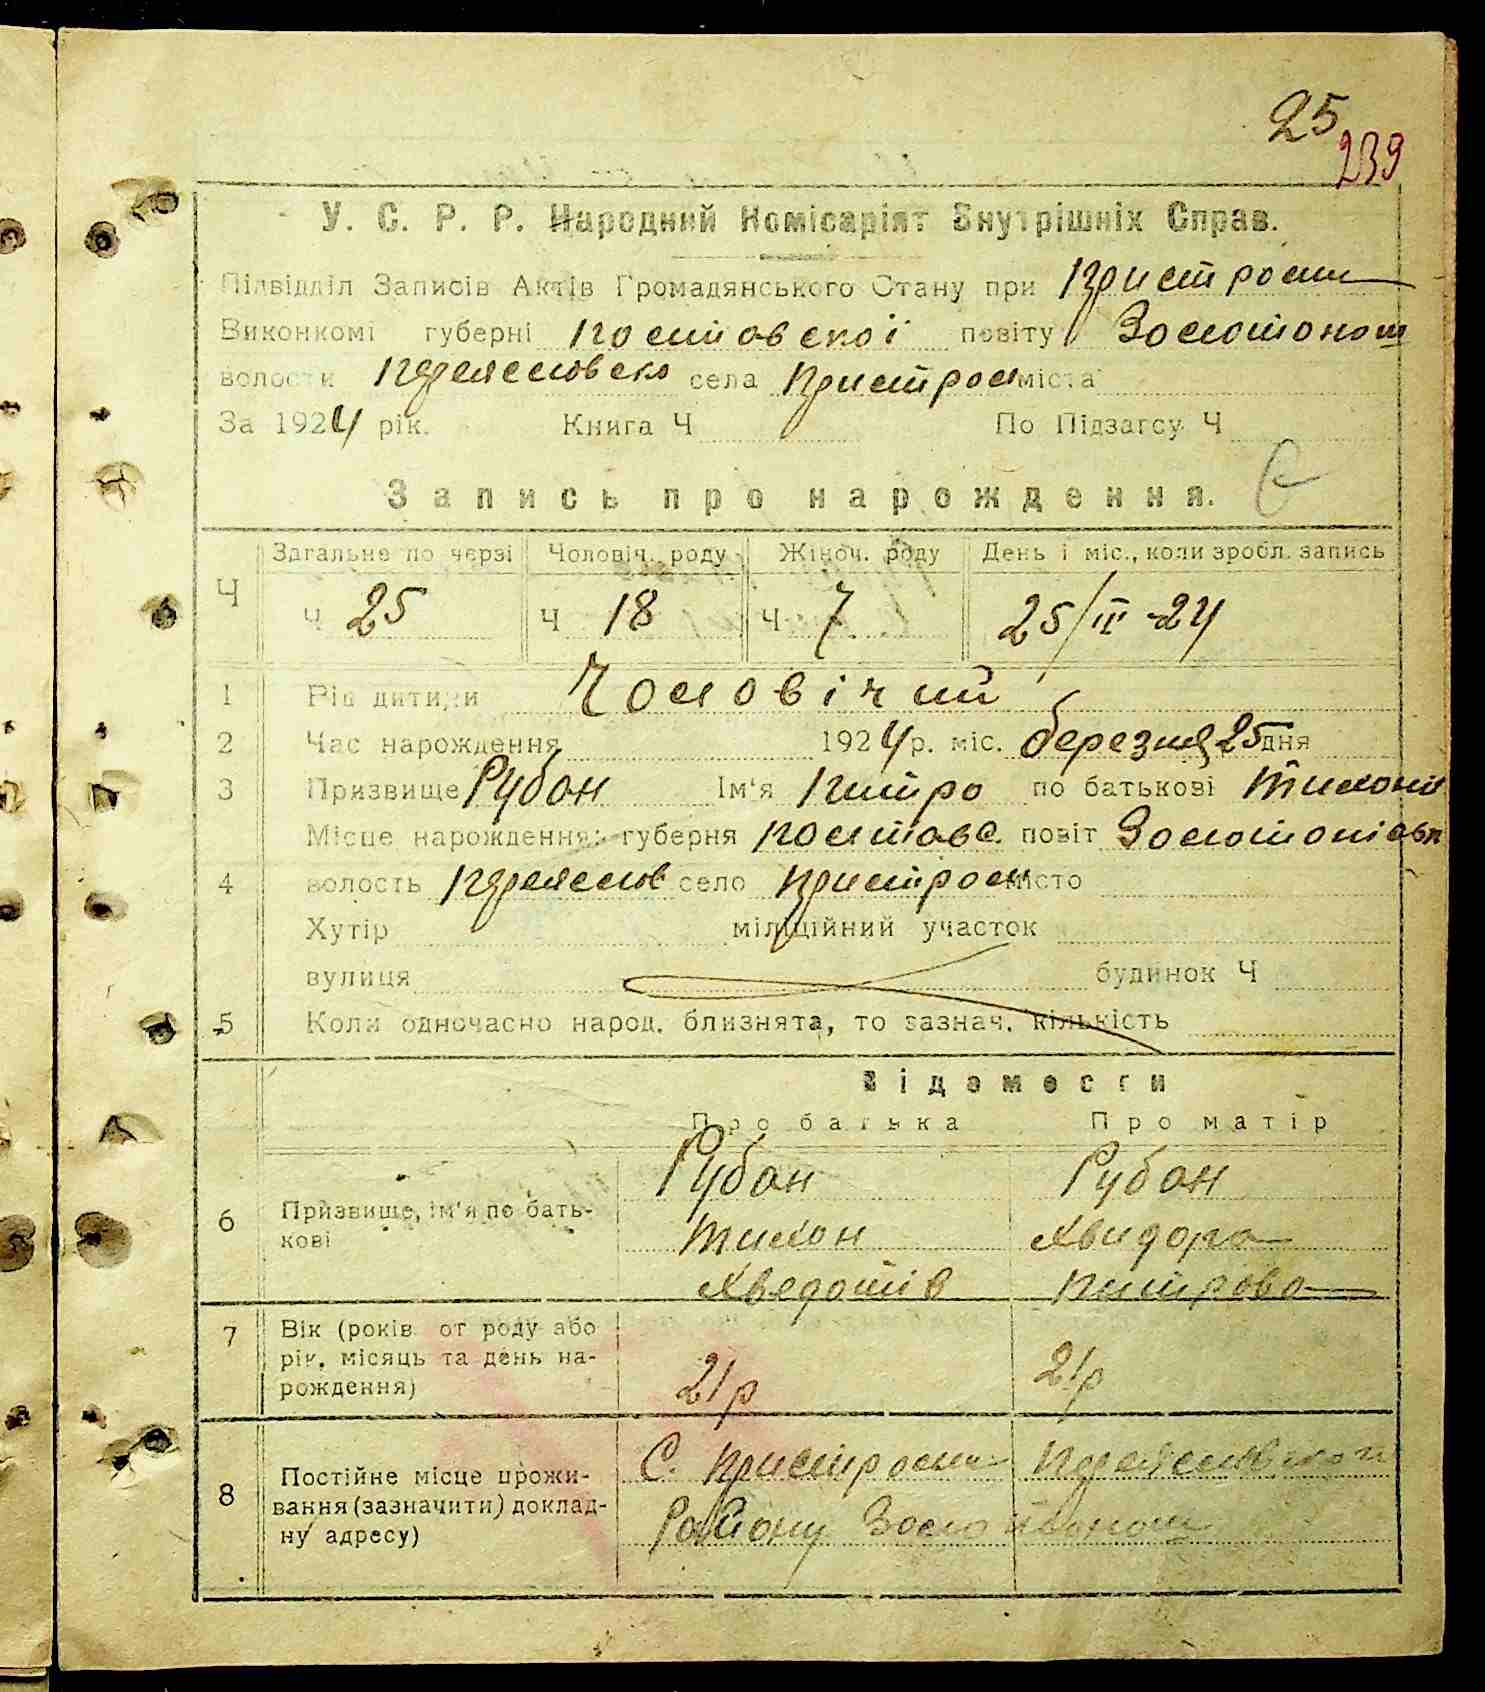 25
239
У. С. Р. Р. Народний Комісаріят Внутрішніх Справ.
Підвідділ Записів Актів Громадянського Стану при Пристром
Виконкомі губерні Полтавської повіту Золотонош
волости села Пристром міста
За 1924 рік. Книга Ч По Підзагсу Ч
Запись про нарождення.
Загальне по черзі Чоловіч. роду Жіноч. роду День і міс., коли зробл. запись
Ч Ч 25 Ч 18 Ч 7 25/III-24
1 Рід дитини Чоловічий
2 Час нарождення 1924 р. міс. березня 25 дня
3 Призвище Рубан Ім'я Питро по батькові Тихонів
Місце нарождення: губерня Полтавс. повіт
4 волость Переяслов село Пристром місто
Хутір міліційний участок
вулиця будинок Ч
5 Коли одночасно народ. близнята, то зазнач. кількість
Відомости
Про батька Про матір
6 Призвище, ім'я по бать-
кові
Рубан Рубан
Тихон Хвидора
Хведотів Питрова
7 Вік (років от роду або
рік, місяць та день на-
рождення)
21р 21р
8 Постійне місце прожи-
вання (зазначити) доклад-
ну адресу)
С. Пристроми
Району Золотонош